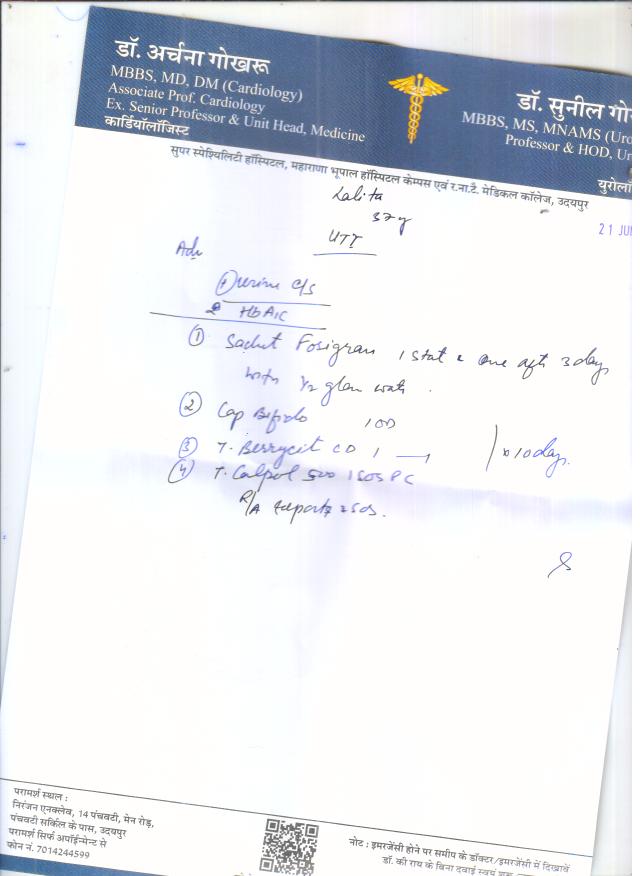 डॉ. अर्चना गोखरू
MBBS, MD, DM (Cardiology)
Associate Prof. Cardiology
Ex. Senior Professor & Unit Head, Medicine
कार्डियॉलॉजिस्ट
डॉ. सुनील गो
MBBS, MS, MNAMS (Uro
Professor & HOD, Ur
युरोलॉ
सुपर स्पेश्यिलिटी हॉस्पिटल, महाराणा भूपाल हॉस्पिटल केम्पस एवं र.ना.टै. मेडिकल कॉलेज, उदयपुर
Lalita
37y
21 JUN
UTI
Adv
① Urine C/S
2 HbA1C
① Sachet Fosigram 1 stat & one aft 3 days
with 1/2 glass wate
② Cap Bifido 1 OD
③ T. Berrycit CD 1 x 10 days.
④ T. Calpol 500 1 SOS PC
R/A reports & SOS.
परामर्श स्थल :
निरंजन एनक्लेव, 14 पंचवटी, मेन रोड़,
पंचवटी सर्किल के पास, उदयपुर
परामर्श सिर्फ अपॉईन्मेन्ट से
फोन नं. 7014244599
नोट : इमरजेंसी होने पर समीप के डॉक्टर/इमरजेंसी में दिखावें
डॉ. की राय के बिना दवाई स्वयं शुरू